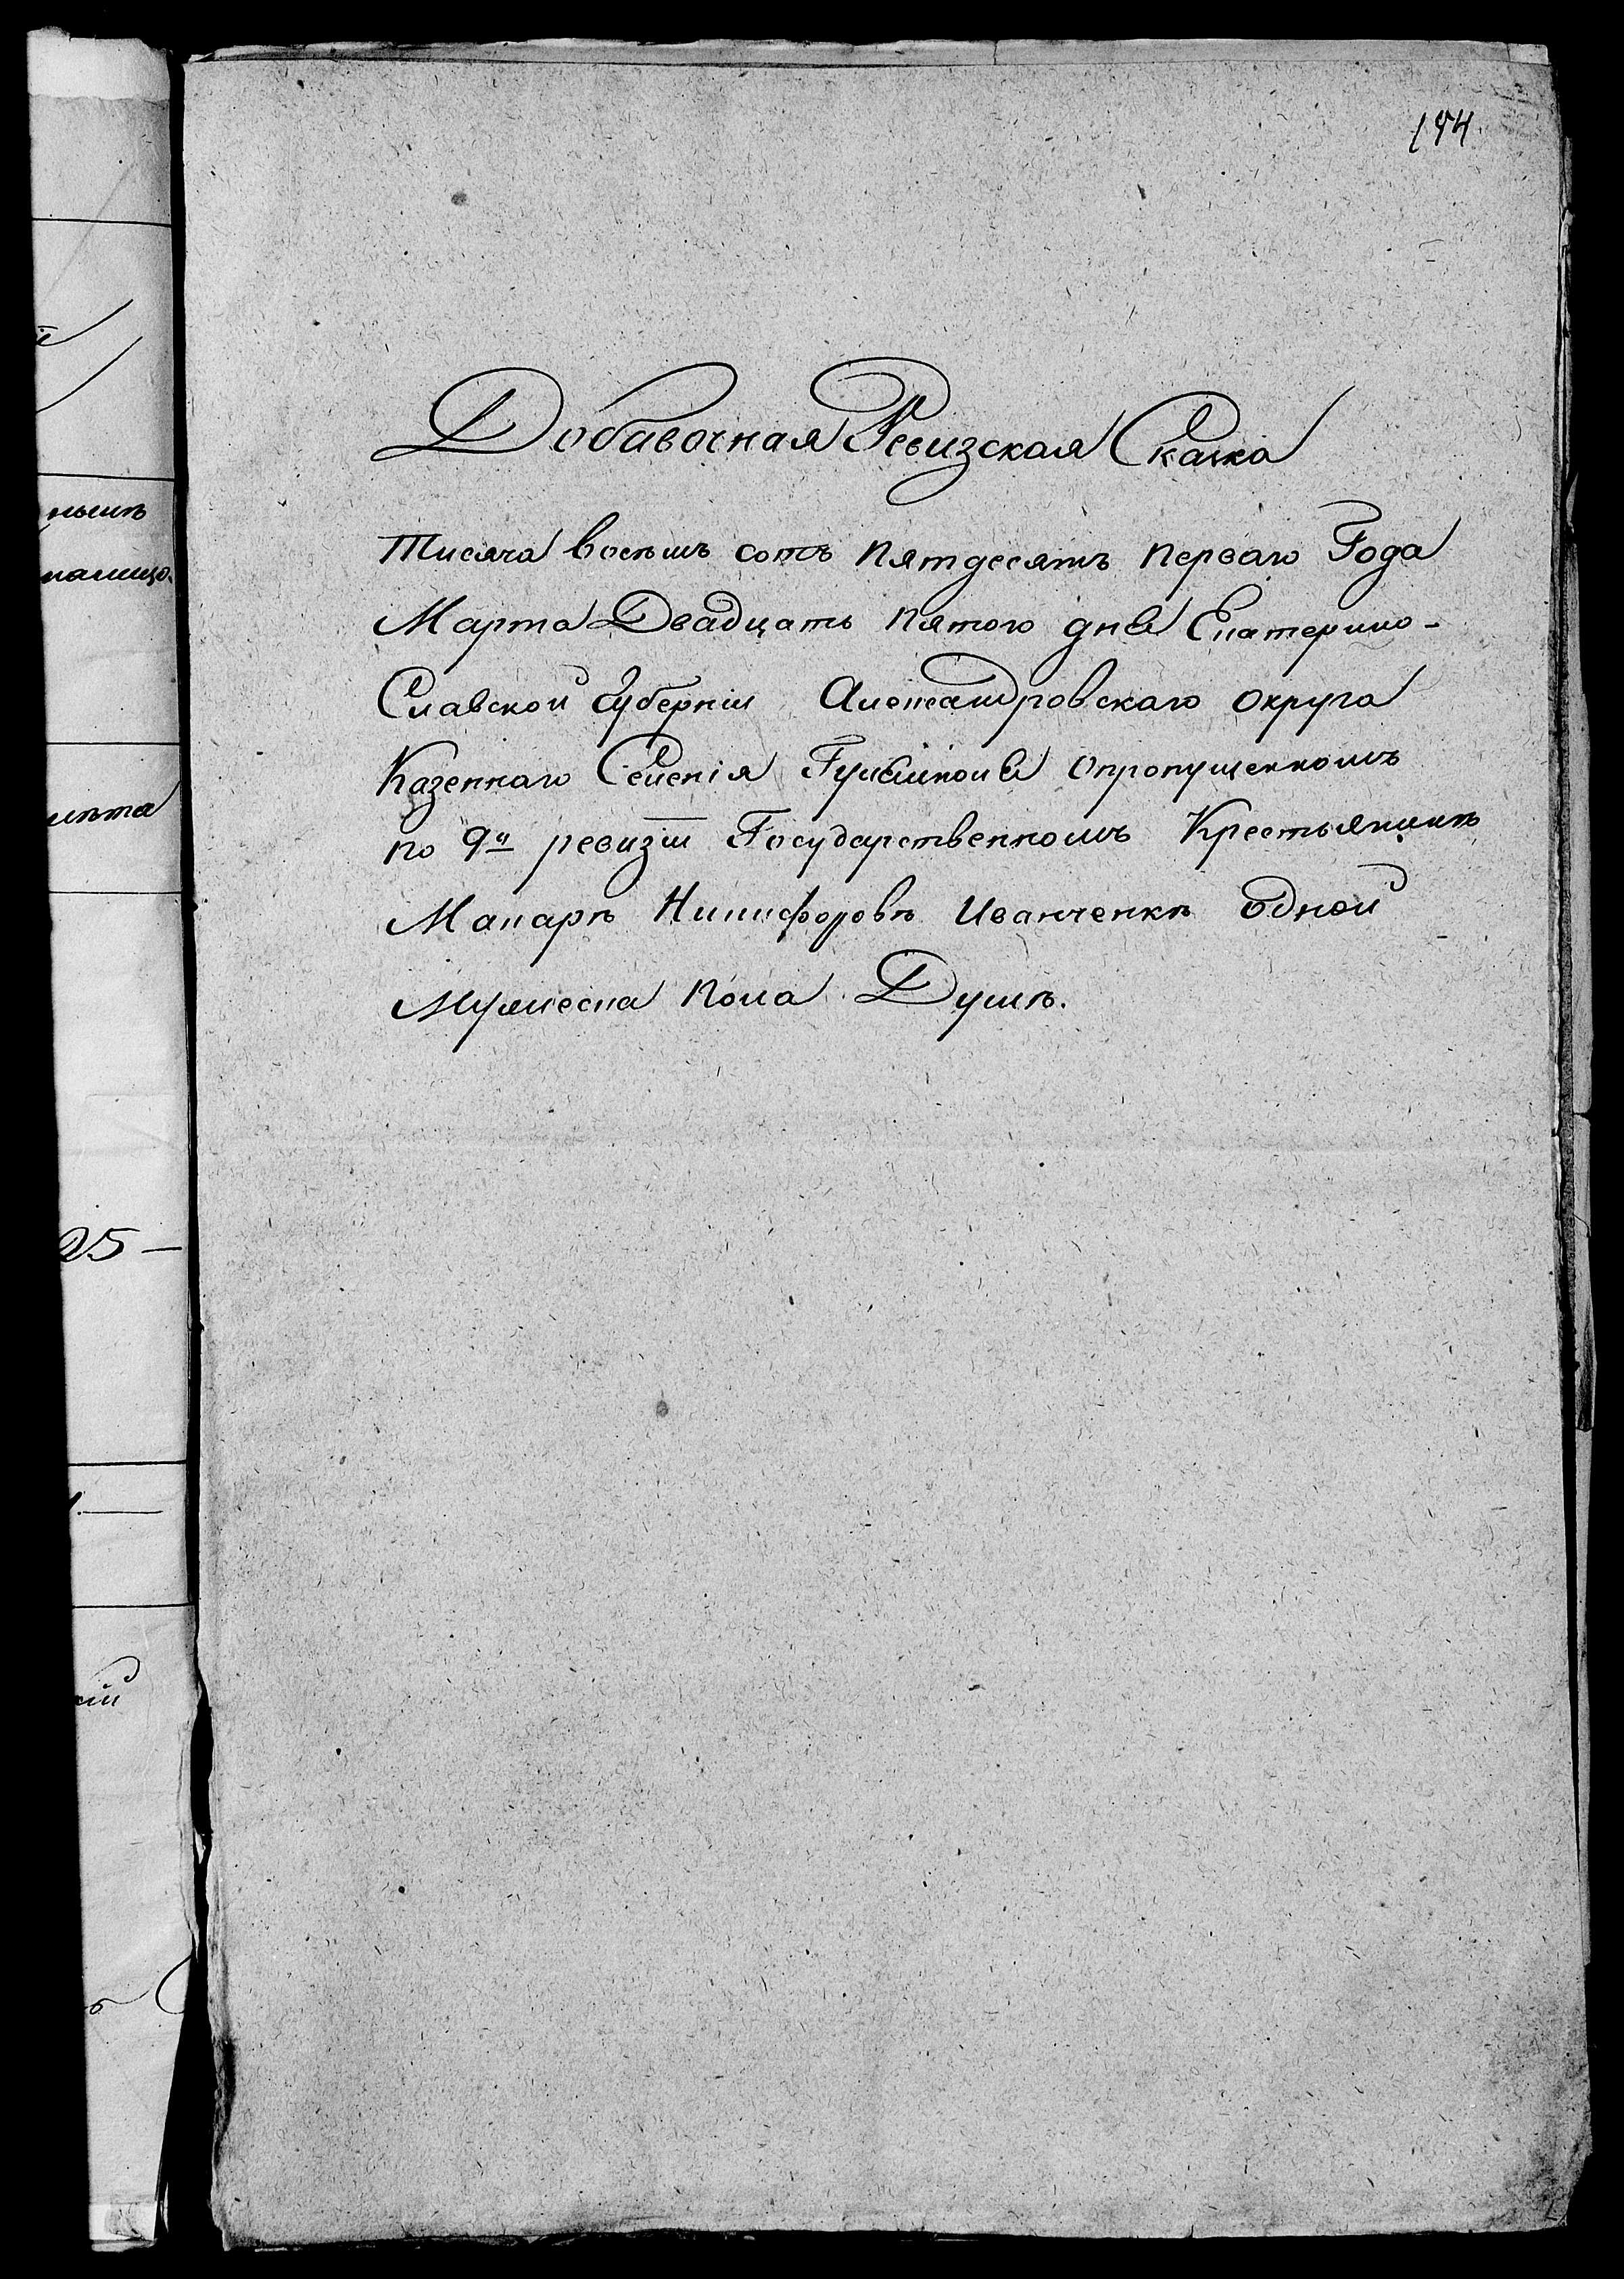 194
Добавочная Ревизская Сказка
Тисяча восемъ сотъ пятдесятъ перваго Года
Марта Двадцать пятого дня Екатерино-
Славской Губерніи Александровскаго округа
Казеннаго Селенія Гуляйполя опропущенномъ
по 9й ревизіи Государственномъ Крестьянинѣ
Макарѣ Никифоровѣ Иванченкѣ одной
Мужеска пола Душѣ.
25 —